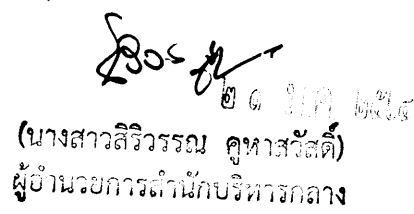 (นางสาวสิริวรรณ คูหาสวัสดิ์)
ผู้อำนวยการสำนักบริหารกลาง